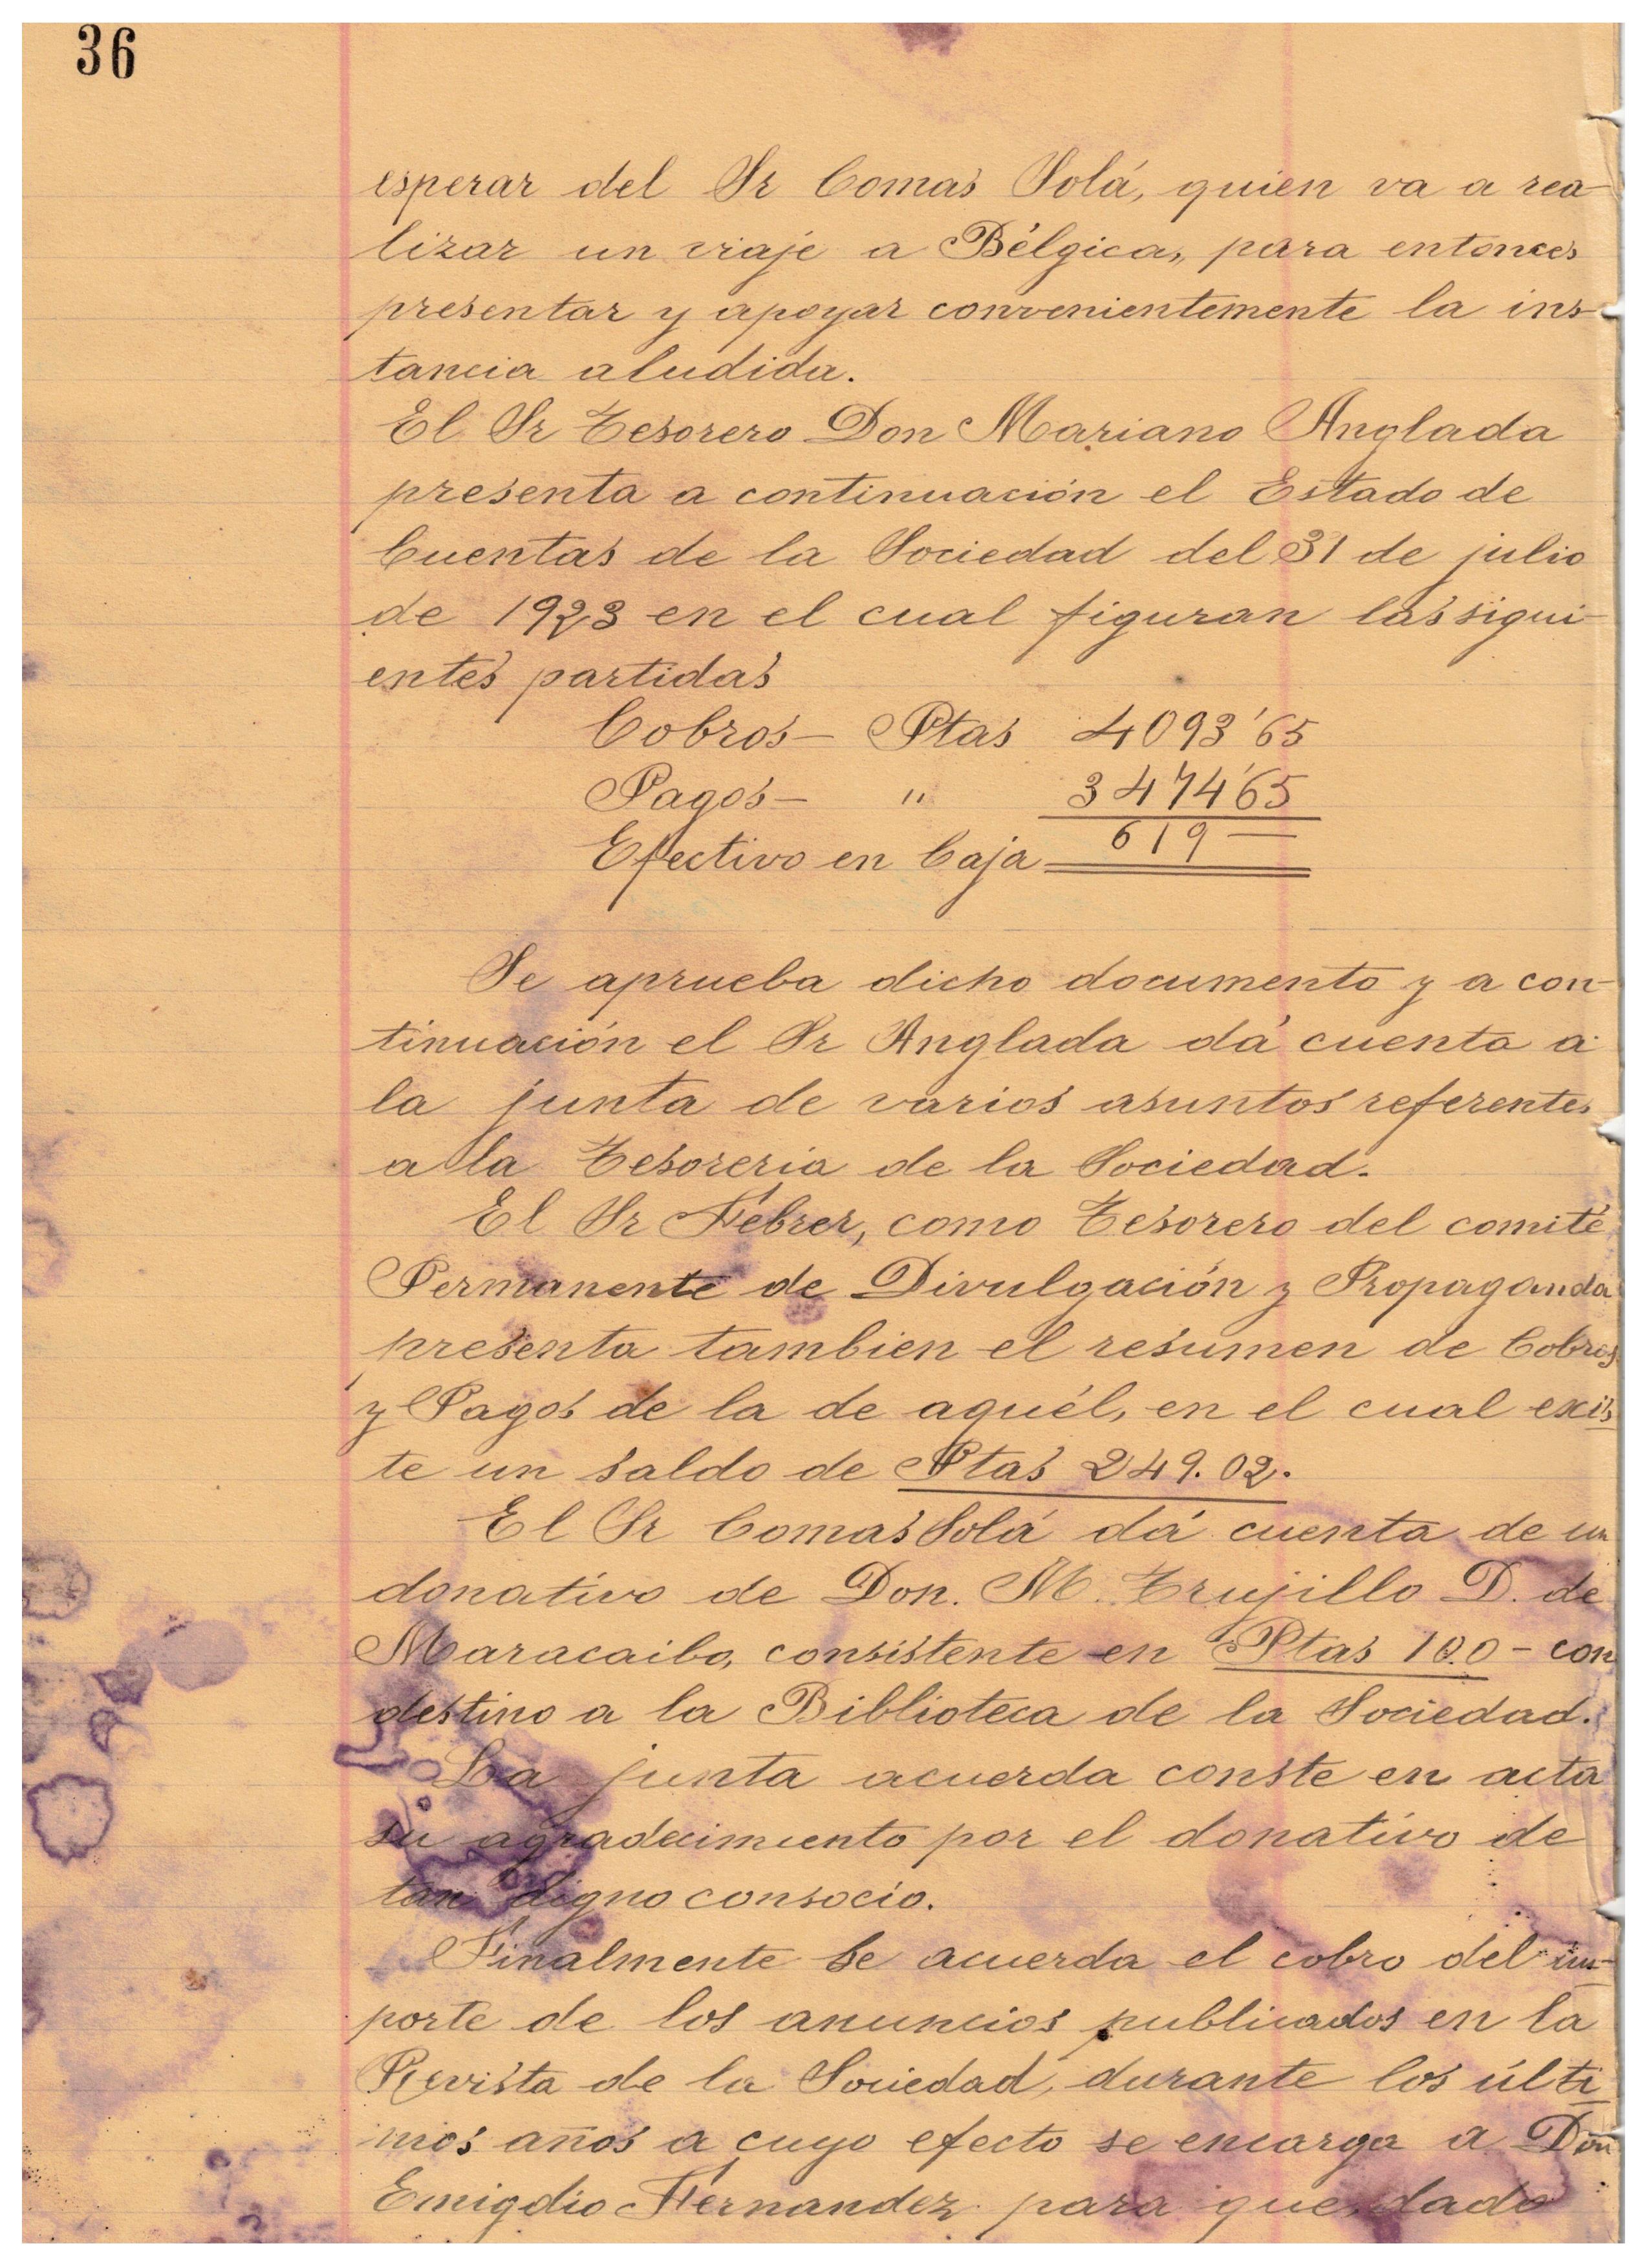 36
esperar del Sr Comas Solá, quien va a rea-
lizar un viaje a Bélgica, para entonces
presentar y apoyar convenientemente la ins-
tancia aludida.
El Sr Tesorero Don Mariano Anglada
presenta a continuación el Estado de
Cuentas de la Sociedad del 31 de julio
de 1923 en el cual figuran las sigui-
entes partidas
Cobros— Ptas 4093'65
Pagos— " 3474'65
Efectivo en Caja 619 —
Se aprueba dicho documento y a con-
tinuación el Sr Anglada dá cuenta a
la junta de varios asuntos referentes
a la Tesoreria de la Sociedad.
El Sr Febrer, como Tesorero del comité
Permanente de Divulgación y Propaganda
presenta tambien el resumen de Cobros
y Pagos de la de aquél, en el cual exis
te un saldo de Ptas 249.02.
El Sr Comas Solá dá cuenta de un
donativo de Don. M. Trujillo D. de
Maracaibo, consistente en Ptas 100 - con
destino a la Biblioteca de la Sociedad.
La junta acuerda conste en acta
su agradecimiento por el donativo de
tan digno consocio.
Finalmente se acuerda el cobro del im-
porte de los anuncios publicados en la
Revista de la Sociedad, durante los últi
mos años a cuyo efecto se encarga a Don
Emigdio Fernandez para que, dado